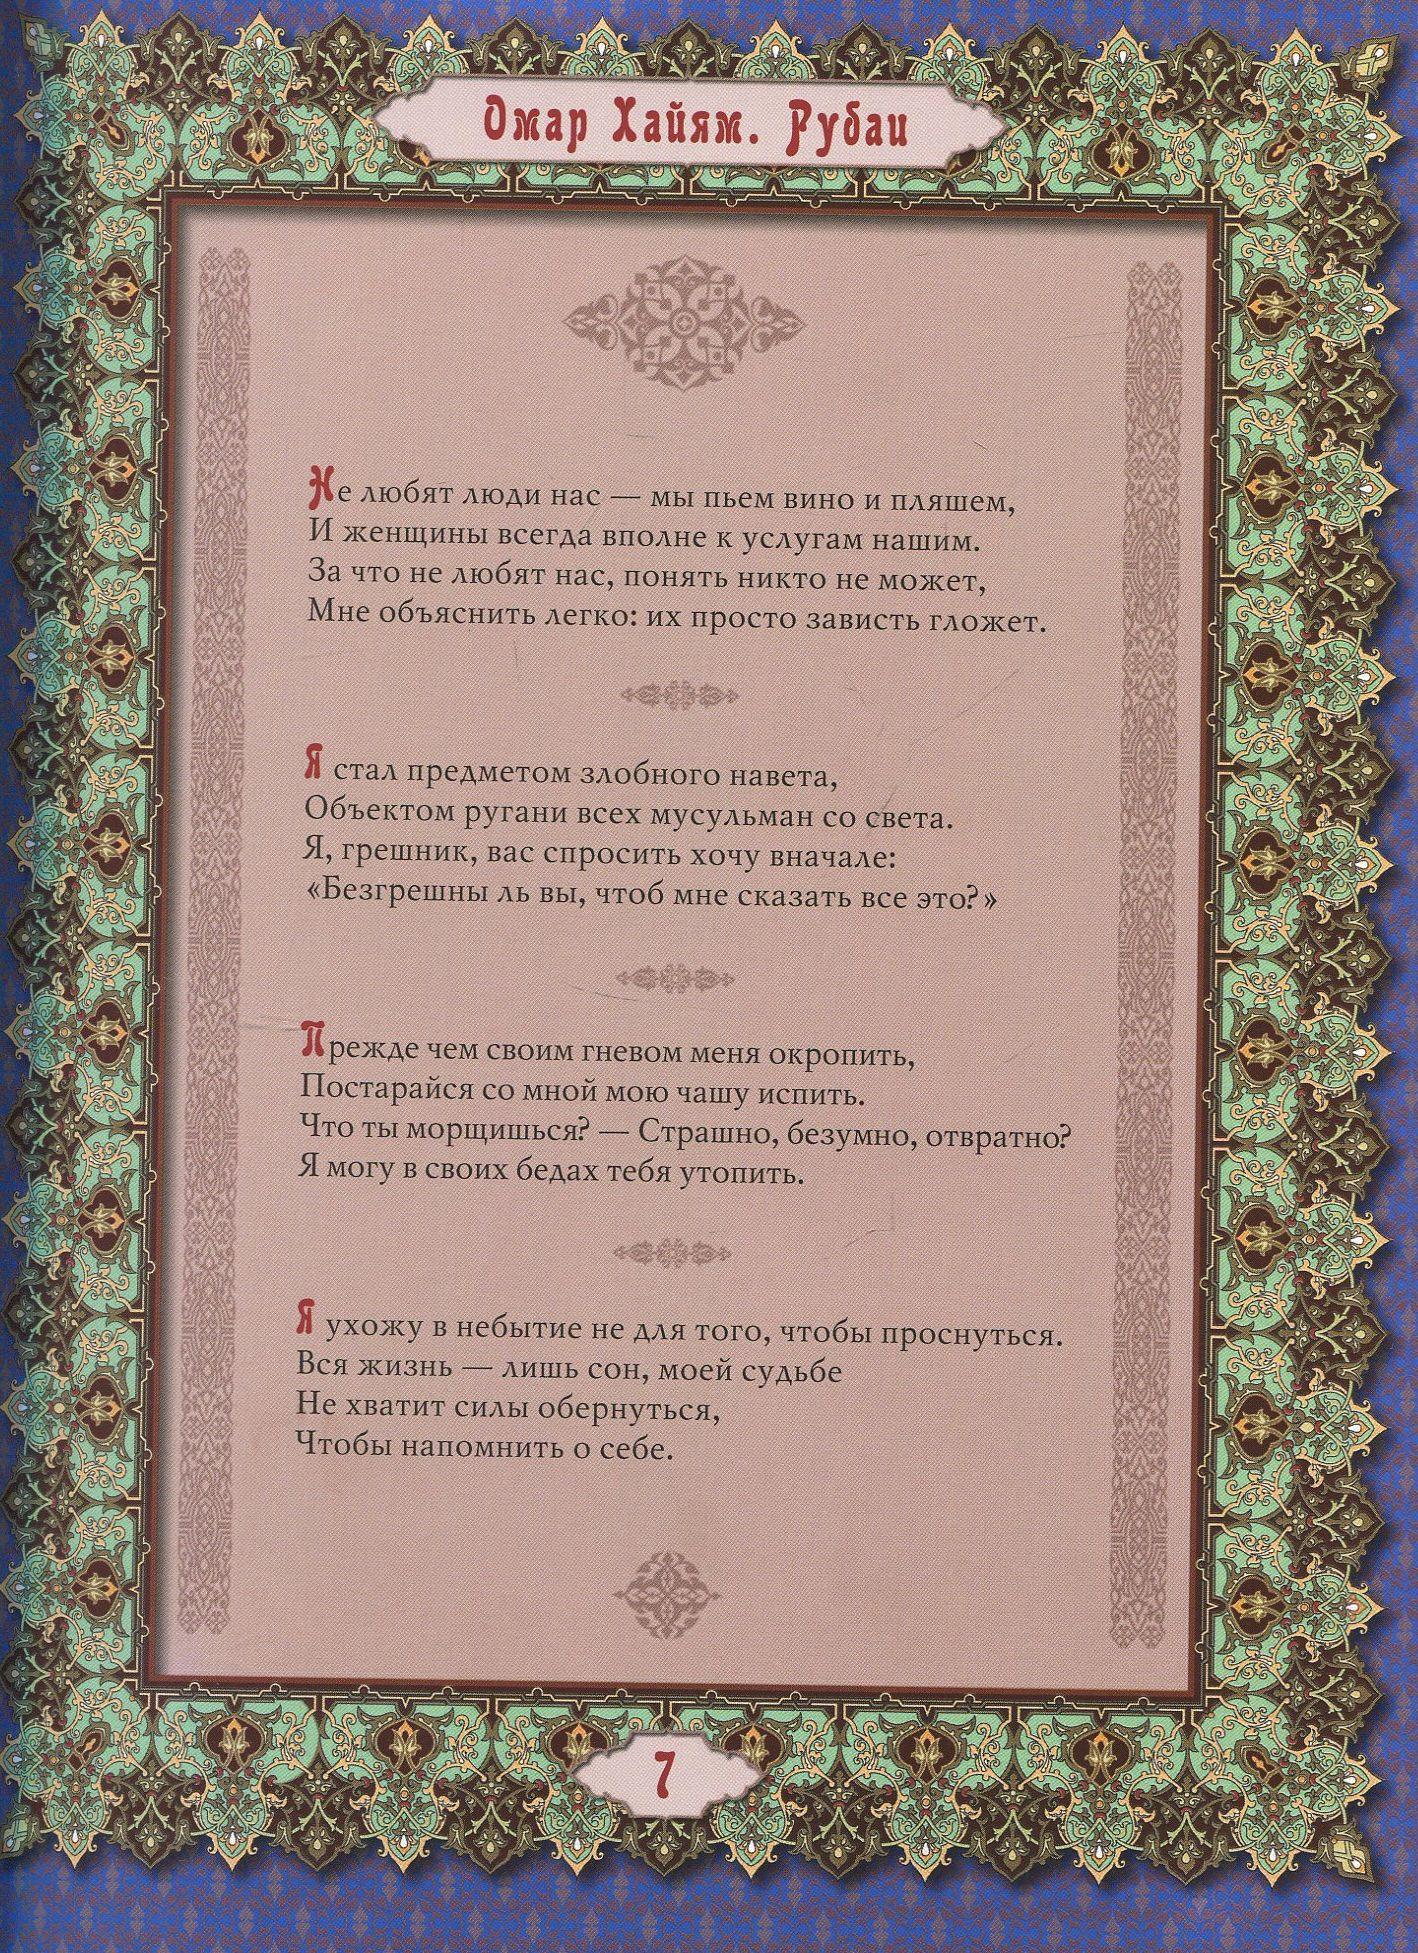 Омар Хайям. Рубаи
Не любят люди нас — мы пьем вино и пляшем,
И женщины всегда вполне к услугам нашим.
За что не любят нас, понять никто не может,
Мне объяснить легко: их просто зависть гложет.
Я стал предметом злобного навета,
Объектом ругани всех мусульман со света.
Я, грешник, вас спросить хочу вначале:
«Безгрешны ль вы, чтоб мне сказать все это?»
Прежде чем своим гневом меня окропить,
Постарайся со мной мою чашу испить.
Что ты морщишься? — Страшно, безумно, отвратно?
Я могу в своих бедах тебя утопить.
Я ухожу в небытие не для того, чтобы проснуться.
Вся жизнь — лишь сон, моей судьбе
Не хватит силы обернуться,
Чтобы напомнить о себе.
7